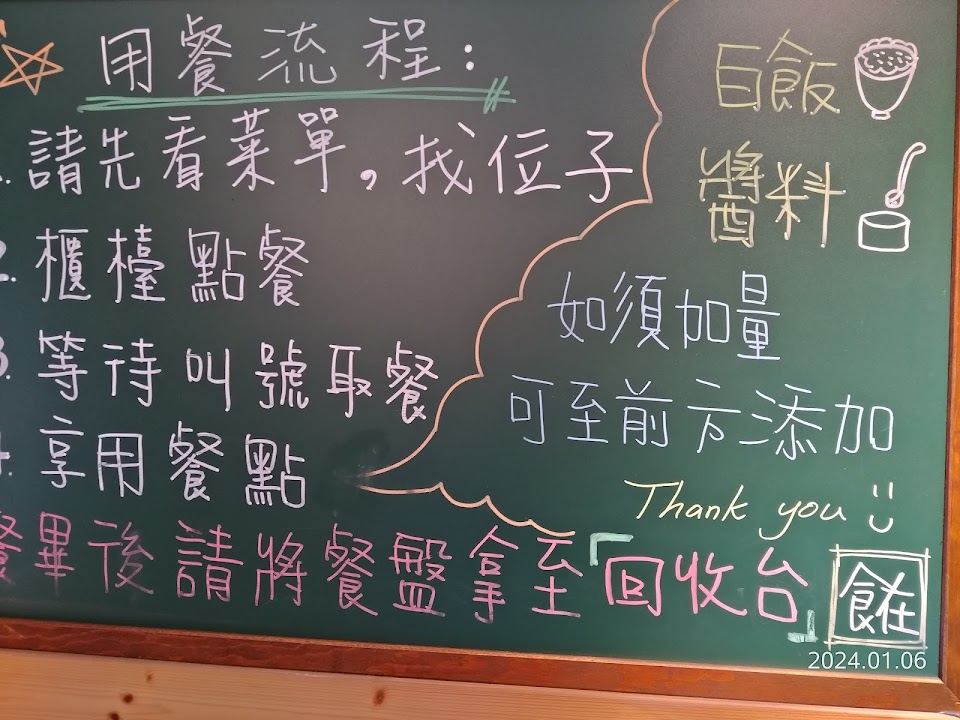 用餐流程：
1. 請先看菜單，找位子
2. 櫃檯點餐
3. 等待叫號取餐
4. 享用餐點
餐畢後請將餐盤拿至「回收台」
白飯
醬料
如須加量
可至前方添加
Thank you :)
食在
2024.01.06